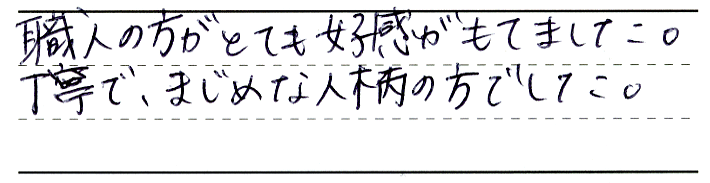 職人の方がとても好感がもてました。
丁寧で、まじめな人柄の方でした。